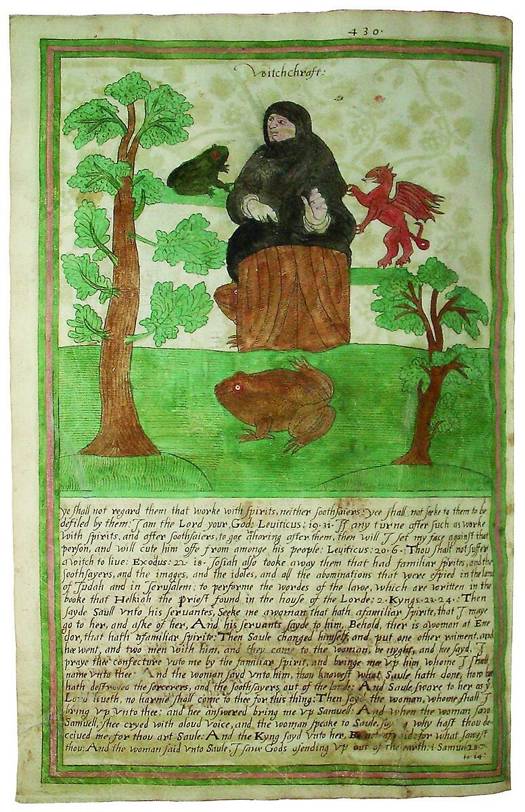 430.
Witchcraft:
ye shall not regard them that worke with spirits, neither soothsaiers: yee shall not seeke to them to be
defiled by them: I am the Lord your God: Leuiticus: 19.31. If any turne after such as worke
with spirits, and after soothsaiers, to goe whoring after them, then will I set my face against that
person, and will cute him offe from amonge his people: Leuiticus: 20.6. Thou shall not suffer
a witch to liue: Exodus: 22.18. Iosiah also tooke away them that had familiar spirits, and the
soothsayers, and the images, and the idoles, and all the abominations that were espied in the lande
of Iudah and in Ierusalem: to performe the wordes of the lawe, which are written in the
booke that Helkiah the priest found in the house of the Lorde: 2. Kyngs. 23.24. Then
sayde Saull vnto his seruantes, Seeke me a woman that hath a familiar spirite, that I maye
go to her, and aske of her, And his seruants sayde to him, Behold, ther is a woman at En
dor, that hath a familiar spirite: Then Saule changed himself, and put one other raiment, and
he went, and two men with him, and they came to the woman, by nyght, and he sayd, I
praye thee coniecture vnto me by the familiar spirit, and bringe me vp him whome I shall
name vnto thee: And the woman sayd vnto him, thou knowest what Saule hath done, how he
hath destroyed the sorcerers, and the soothsayers out of the lande: And Saule sware to her
Lord liueth, no harme shall come to thee for this thing: Then sayd the woman, whome shall I
bring vp vnto thee: and hee answered bring me vp Samuel: And when the woman saw
Samuell, shee cryed with aloud voice, and the woman speake to Saule, why hast thou de
ceiued me, for thou art Saule: And the Kyng sayd vnto her, Be not for what sawest
thou: And the woman said vnto Saule, I sawe Gods asending vp out of the earth: 1 Samuel